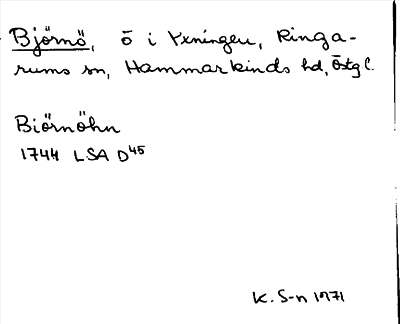 Björnö, ö i Yxningen, Ringa-
rums sn, Hammarkinds hd, Östg l.
Biörnöhn
1744 LSA D45
K. S-n 1971